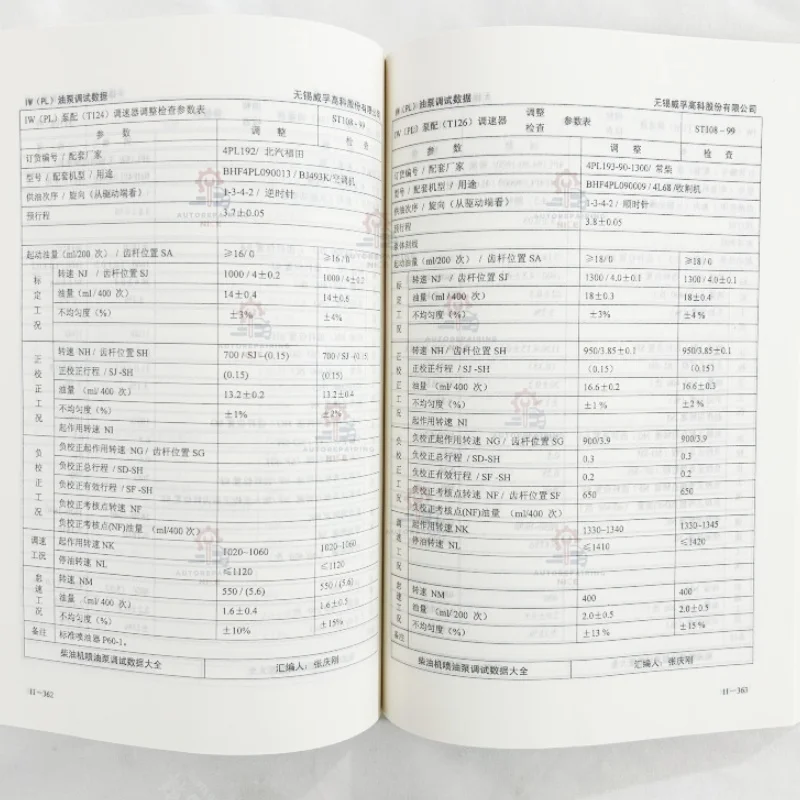 IW（PL）油泵调试数据 无锡威孚高科股份有限公司
IW（PL）泵配（T124）调速器调整检查参数表 ST108-99
参 数 调 整 检 查
订货编号 / 配套厂家 4PL192/ 北汽福田
型号 / 配套机型 / 用途 BHF4PL090013 / BJ493K/空调机
供油次序 / 旋向（从驱动端看） 1-3-4-2 / 逆时针
预行程 3.7±0.05
起动油量（ml/200 次） / 齿杆位置 SA ≥16/ 0 ≥16/ 0
标定工况
转速 NJ / 齿杆位置 SJ 1000 / 4±0.2 1000 / 4±0.2
油量（ml/400 次） 14±0.4 14±0.6
不均匀度（%） ±3% ±4%
正校正工况
转速 NH / 齿杆位置 SH 700 / SJ-(0.15) 700 / SJ-(0.15)
正校正行程 / SJ -SH (0.15) (0.15)
油量 （ml/400 次） 13.2±0.2 13.2±0.4
不均匀度（%） ±1% ±2%
起作用转速 NI
负校正工况
负校正起作用转速 NG / 齿杆位置 SG
负校正总行程 / SD-SH
负校正有效行程 / SF -SH
负校正考核点转速 NF
负校正考核点(NF)油量 （ml/400 次）
调速工况
起作用转速 NK 1020-1060 1020-1060
停油转速 NL ≤1120 ≤1120
怠速工况
转速 NM 550 / (5.6) 550 / (5.6)
油量 （ml/400 次） 1.6±0.4 1.6±0.5
不均匀度（%） ±10% ±15%
备注 标准喷油器 P60-1。
柴油机喷油泵调试数据大全 汇编人：张庆刚
II－362
IW（PL）油泵调试数据 无锡威孚高科股份有限公司
IW（PL）泵配（T126）调速器 调整 检查 参数表 ST108-99
参 数 调 整 检 查
订货编号 / 配套厂家 4PL193-90-1300/ 常柴
型号 / 配套机型 / 用途 BHF4PL090009 / 4L68 /收割机
供油次序 / 旋向（从驱动端看） 1-3-4-2 / 顺时针
预行程 3.8±0.05
泵体刻线
起动油量（ml/200 次） / 齿杆位置 SA ≥18/ 0 ≥18/ 0
标定工况
转速 NJ / 齿杆位置 SJ 1300 / 4.0±0.1 1300 / 4.0±0.1
油量（ml/400 次） 18±0.3 18±0.4
不均匀度（%） ±3% ±4%
正校正工况
转速 NH / 齿杆位置 SH 950/3.85±0.1 950/3.85±0.1
正校正行程 / SJ -SH （0.15） （0.15）
油量 （ml/400 次） 16.6±0.2 16.6±0.3
不均匀度（%） ±1% ±2%
起作用转速 NI
负校正工况
负校正起作用转速 NG / 齿杆位置 SG 900/3.9 900/3.9
负校正总行程 / SD-SH 0.3 0.3
负校正有效行程 / SF -SH 0.2 0.2
负校正考核点转速 NF / 齿杆位置 SF 650 650
负校正考核点(NF)油量 （ml/400 次）
调速工况
起作用转速 NK 1330-1340 1330-1345
停油转速 NL ≤1410 ≤1420
怠速工况
转速 NM 400 400
油量 （ml/200 次） 2.0±0.5 2.0±0.5
不均匀度（%） ±13% ±15%
备注
柴油机喷油泵调试数据大全 汇编人：张庆刚
II－363
AUTOREPAIRING
NICE